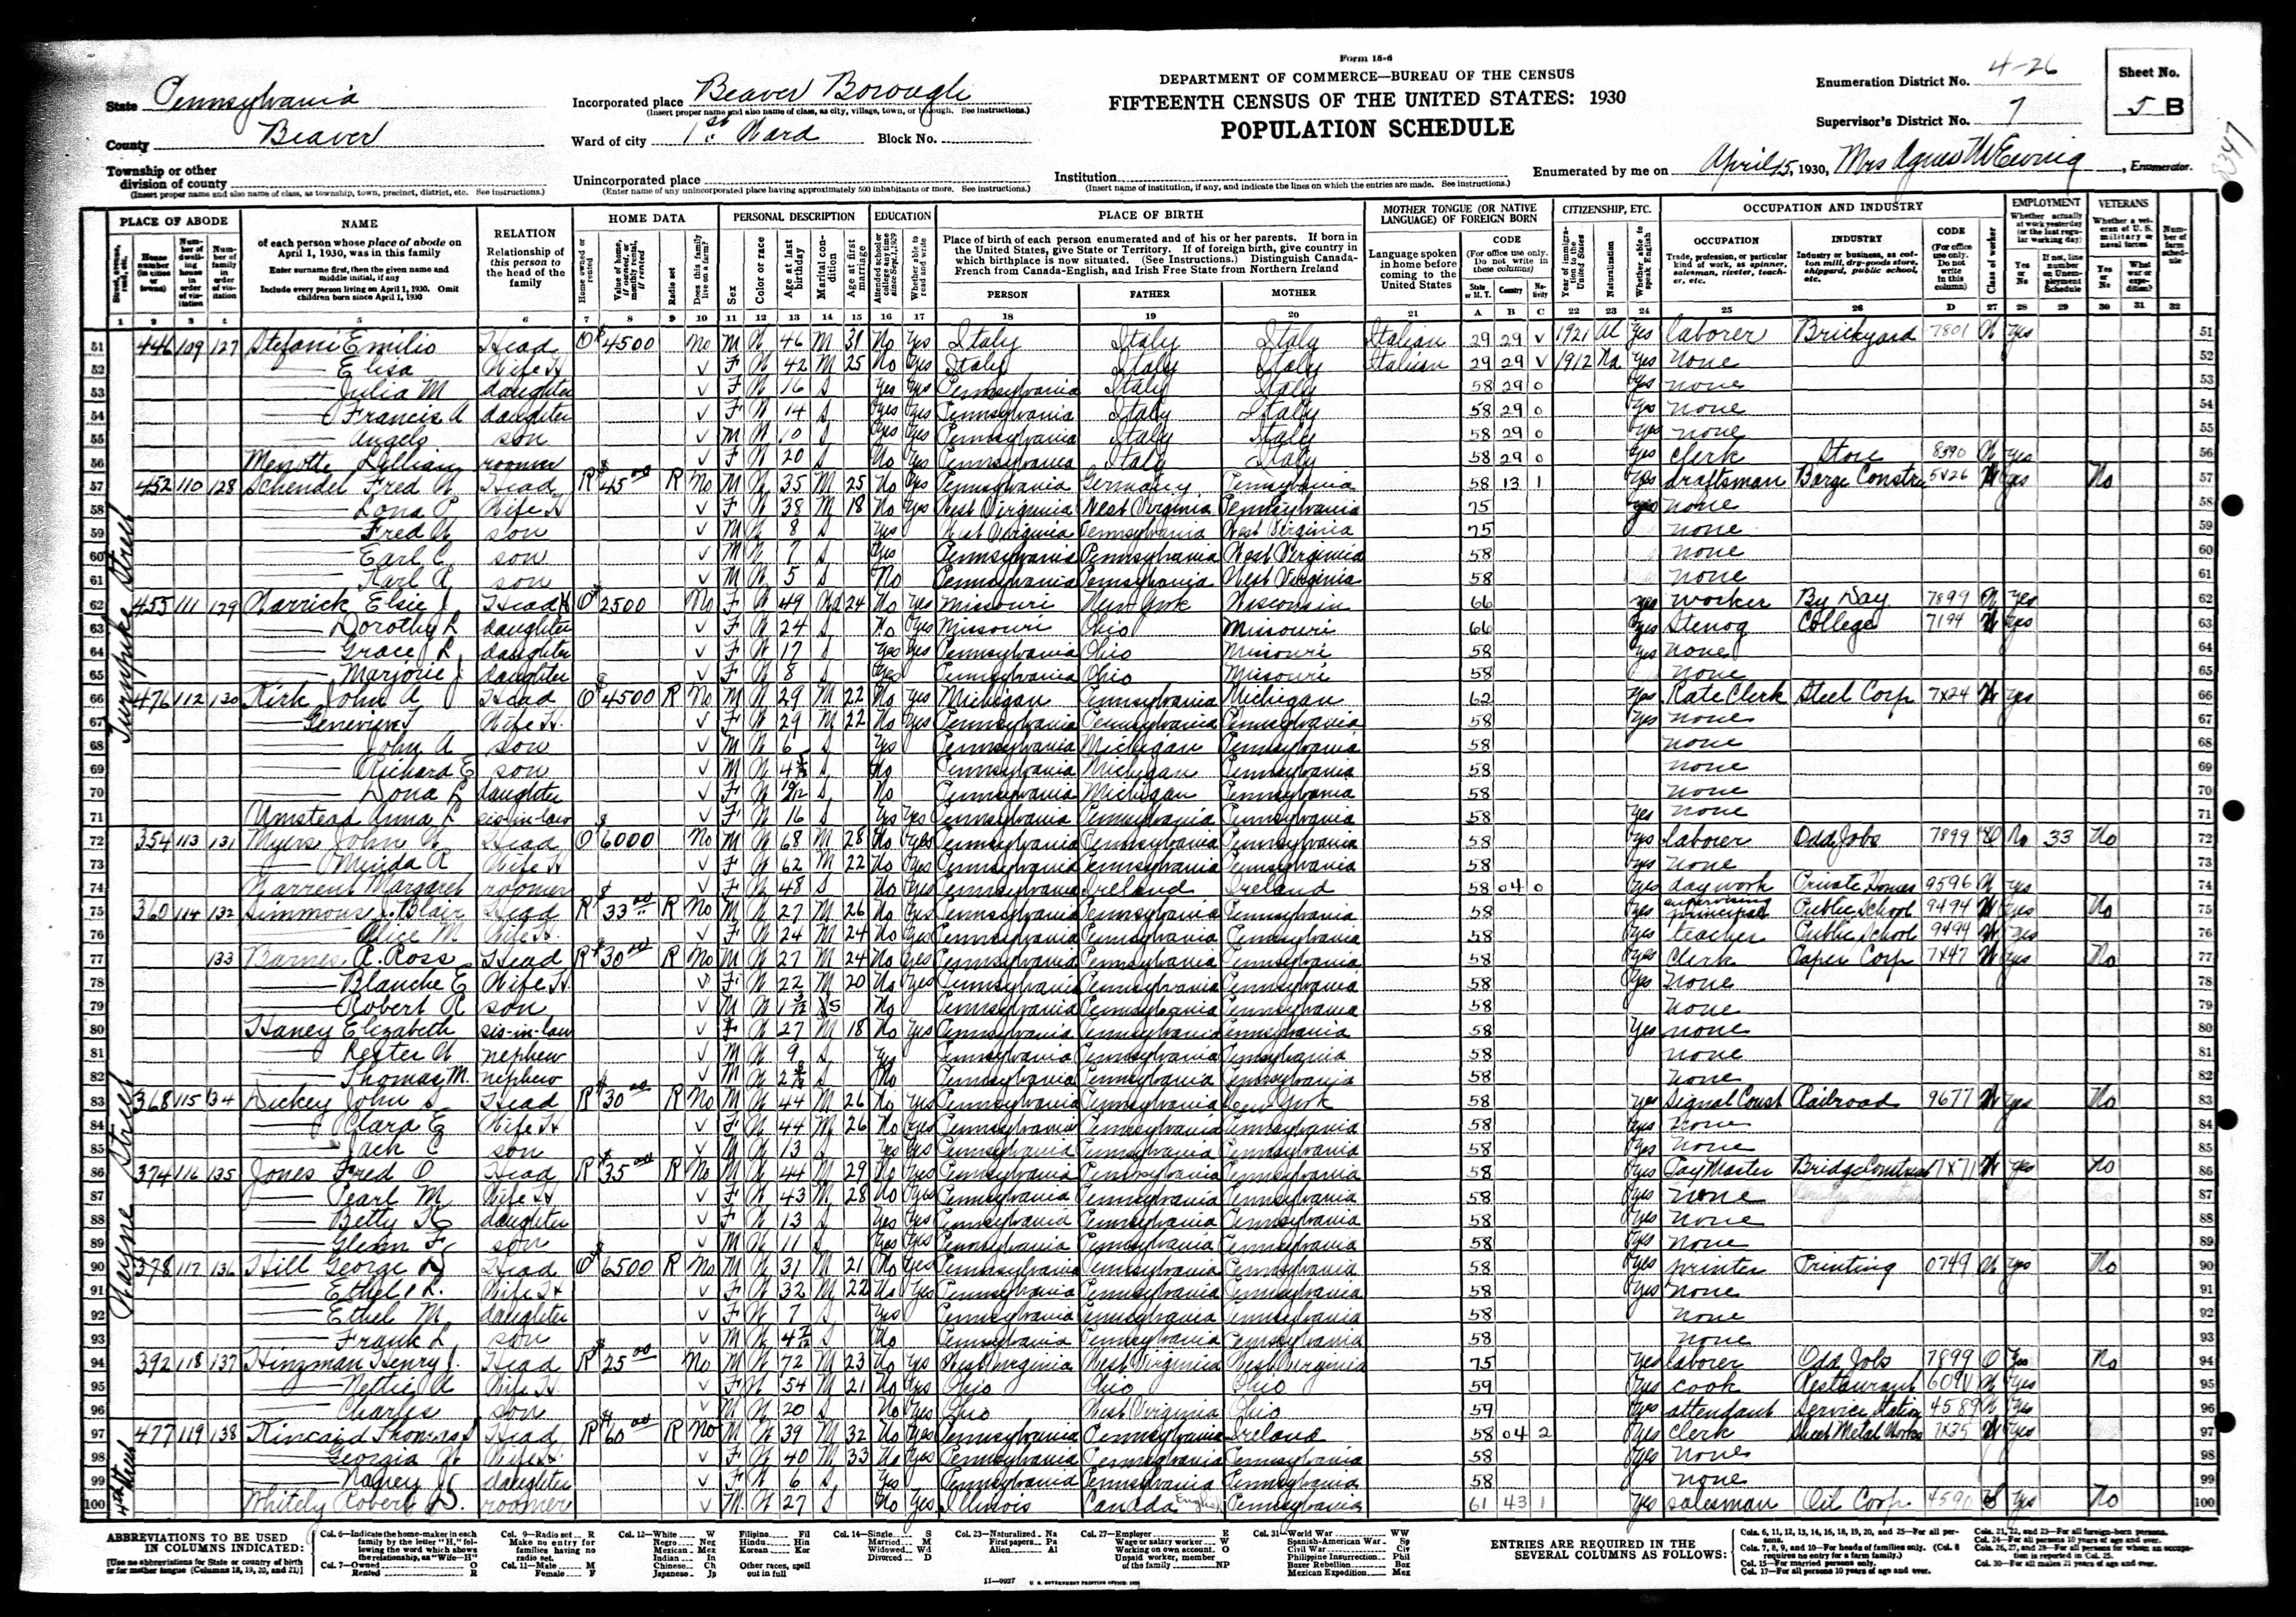 Form 15-6
DEPARTMENT OF COMMERCE—BUREAU OF THE CENSUS
FIFTEENTH CENSUS OF THE UNITED STATES: 1930
POPULATION SCHEDULE
State Pennsylvania
County Beaver
Township or other division of county
(Insert proper name and also name of class, as township, town, precinct, district, etc. See instructions.)
Incorporated place Beaver Borough
(Insert proper name and also name of class, as city, village, town, or borough. See instructions.)
Ward of city 1st Ward Block No.
Unincorporated place
(Enter name of any unincorporated place having approximately 500 inhabitants or more. See instructions.)
Institution
(Insert name of institution, if any, and indicate the lines on which the entries are made. See instructions.)
Enumeration District No. 4-26
Supervisor's District No. 7
Sheet No. 5 B
8347
Enumerated by me on April 15, 1930, Mrs Agnes McEwing, Enumerator.
PLACE OF ABODE NAME RELATION HOME DATA PERSONAL DESCRIPTION EDUCATION PLACE OF BIRTH MOTHER TONGUE (OR NATIVE LANGUAGE) OF FOREIGN BORN CITIZENSHIP, ETC. OCCUPATION AND INDUSTRY EMPLOYMENT VETERANS
of each person whose place of abode on April 1, 1930, was in this family
Enter surname first, then the given name and middle initial, if any
Include every person living on April 1, 1930. Omit children born since April 1, 1930
Relationship of this person to the head of the family
Place of birth of each person enumerated and of his or her parents. If born in the United States, give State or Territory. If of foreign birth, give country in which birthplace is now situated. (See Instructions.) Distinguish Canada-French from Canada-English, and Irish Free State from Northern Ireland
PERSON FATHER MOTHER
Language spoken in home before coming to the United States
CODE (For office use only. Do not write in these columns)
OCCUPATION INDUSTRY CODE
Turnpike Street
51 446 109 127 Stefani Emilio Head O $4500 No M W 46 M 31 No Yes Italy Italy Italy Italian 29 29 V 1921 Al Yes laborer Brickyard 7801 W Yes 51
52 — Elisa Wife H V F W 42 M 25 No Yes Italy Italy Italy Italian 29 29 V 1912 Na Yes none 52
53 — Julia M daughter V F W 16 S Yes Yes Pennsylvania Italy Italy 58 29 0 Yes none 53
54 — Francis A daughter V F W 14 S Yes Yes Pennsylvania Italy Italy 58 29 0 Yes none 54
55 — Angelo son V M W 10 S Yes Yes Pennsylvania Italy Italy 58 29 0 Yes none 55
56 Menotte Lyllian roomer V F W 20 S No Yes Pennsylvania Italy Italy 58 29 0 Yes clerk Store 8590 W Yes 56
57 452 110 128 Schendel Fred W Head R $45 00 R No M W 35 M 25 No Yes Pennsylvania Germany Pennsylvania 58 13 1 Yes draftsman Barge Constru 5V26 W Yes No 57
58 — Lona P Wife H V F W 38 M 18 No Yes West Virginia West Virginia Pennsylvania 75 yes none 58
59 — Fred W son V M W 8 S Yes West Virginia Pennsylvania West Virginia 75 none 59
60 — Earl C son V M W 7 S Yes Pennsylvania Pennsylvania West Virginia 58 none 60
61 — Karl A son V M W 5 S No Pennsylvania Pennsylvania West Virginia 58 none 61
62 455 111 129 Warrick Elsie J Head H O $2500 No F W 49 Wd 24 No Yes Missouri New York Wisconsin 66 yes worker By Day 7899 W Yes 62
63 — Dorothy L daughter V F W 24 S No Yes Missouri Ohio Missouri 66 Yes Stenog College 7194 W Yes 63
64 — Grace L daughter V F W 17 S Yes Yes Pennsylvania Ohio Missouri 58 Yes none 64
65 — Marjorie J daughter V F W 8 S Yes Pennsylvania Ohio Missouri 58 none 65
66 476 112 130 Kirk John A Head O $4500 R No M W 29 M 22 No Yes Michigan Pennsylvania Michigan 62 Yes Rate Clerk Steel Corp 7X24 W Yes 66
67 — Genevieve T Wife H V F W 29 M 22 No Yes Pennsylvania Pennsylvania Pennsylvania 58 Yes none 67
68 — John A son V M W 6 S Yes Pennsylvania Michigan Pennsylvania 58 none 68
69 — Richard E son V M W 4 S No Pennsylvania Michigan Pennsylvania 58 none 69
70 — Dona L daughter V F W S No Pennsylvania Michigan Pennsylvania 58 none 70
71 Umstead Anna L sis-in-law V F W 16 S Yes Yes Pennsylvania Pennsylvania Pennsylvania 58 Yes none 71
Wayne Street
72 354 113 131 Myers John W Head O $6000 No M W 68 M 28 No Yes Pennsylvania Pennsylvania Pennsylvania 58 Yes laborer Odd Jobs 7899 O No 33 No 72
73 — Minda R Wife H V F W 62 M 22 No Yes Pennsylvania Pennsylvania Pennsylvania 58 Yes none 73
74 Warrent Margaret roomer V F W 48 S No Yes Pennsylvania Ireland Ireland 58 04 0 Yes day work Private Homes 9596 W yes 74
75 360 114 132 Simmons J. Blair Head R $33 00 R No M W 27 M 26 No Yes Pennsylvania Pennsylvania Pennsylvania 58 Yes supervising principal Public School 9494 W Yes No 75
76 — Alice M Wife H V F W 24 M 24 No Yes Pennsylvania Pennsylvania Pennsylvania 58 Yes teacher Public School 9494 W Yes 76
77 133 Barnes R. Ross Head R $30 00 R No M W 27 M 24 No Yes Pennsylvania Pennsylvania Pennsylvania 58 Yes clerk Paper Corp 7X47 W Yes No 77
78 — Blanche E Wife H V F W 22 M 20 No Yes Pennsylvania Pennsylvania Pennsylvania 58 Yes none 78
79 — Robert R son V M W 1 S No Pennsylvania Pennsylvania Pennsylvania 58 none 79
80 Haney Elizabeth sis-in-law V F W 27 M 18 No Yes Pennsylvania Pennsylvania Pennsylvania 58 Yes none 80
81 — Lester W nephew V M W 9 S Yes Pennsylvania Pennsylvania Pennsylvania 58 none 81
82 — Thomas M. nephew V M W 2 S No Pennsylvania Pennsylvania Pennsylvania 58 none 82
83 368 115 134 Dickey John S Head R $30 00 R No M W 44 M 26 No Yes Pennsylvania Pennsylvania New York 58 yes Signal Const Railroad 9677 W yes No 83
84 — Clara E Wife H V F W 44 M 26 No Yes Pennsylvania Pennsylvania Pennsylvania 58 Yes none 84
85 — Jack C son V M W 13 S Yes Yes Pennsylvania Pennsylvania Pennsylvania 58 Yes none 85
86 374 116 135 Jones Fred O Head R $35 00 R No M W 44 M 29 No Yes Pennsylvania Pennsylvania Pennsylvania 58 Yes Pay Master Bridge Construct 7X71 W yes No 86
87 — Pearl M Wife H V F W 43 M 28 No Yes Pennsylvania Pennsylvania Pennsylvania 58 Yes none 87
88 — Betty daughter V F W 13 S Yes Yes Pennsylvania Pennsylvania Pennsylvania 58 Yes none 88
89 — Glenn F son V M W 11 S Yes Yes Pennsylvania Pennsylvania Pennsylvania 58 Yes none 89
90 378 117 136 Hill George L Head O $6500 R No M W 31 M 21 No Yes Pennsylvania Pennsylvania Pennsylvania 58 Yes printer Printing 0749 W Yes No 90
91 — Ethel L. Wife H V F W 32 M 22 No Yes Pennsylvania Pennsylvania Pennsylvania 58 Yes none 91
92 — Ethel M daughter V F W 7 S Yes Pennsylvania Pennsylvania Pennsylvania 58 none 92
93 — Frank L son V M W 4 S No Pennsylvania Pennsylvania Pennsylvania 58 none 93
94 392 118 137 Hinzman Henry J. Head R $25 00 No M W 72 M 23 No Yes West Virginia West Virginia West Virginia 75 Yes laborer Odd Jobs 7899 O Yes No 94
95 — Nettie A Wife H. V F W 54 M 21 No Yes Ohio Ohio Ohio 59 Yes cook Restaurant 609V W Yes 95
96 — Charles son V M W 20 S No Yes Ohio West Virginia Ohio 59 Yes attendant Service Station 4589 W Yes 96
4th Street
97 477 119 138 Kincaid Thomas J Head R $60 00 R No M W 39 M 32 No Yes Pennsylvania Pennsylvania Ireland 58 04 2 Yes clerk Sheet Metal Works 7X35 W Yes 97
98 — Georgia W Wife H. V F W 40 M 33 No Yes Pennsylvania Pennsylvania Pennsylvania 58 Yes none 98
99 — Nancy J daughter V F W 6 S Yes Pennsylvania Pennsylvania Pennsylvania 58 none 99
100 Whitely Robert D. roomer V M W 27 S No Yes Illinois Canada English Pennsylvania 61 43 1 Yes salesman Oil Corp 4590 W Yes No 100
ABBREVIATIONS TO BE USED IN COLUMNS INDICATED:
[Use no abbreviations for State or country of birth or for mother tongue (Columns 18, 19, 20, and 21)]
Col. 6—Indicate the home-maker in each family by the letter "H," following the word which shows the relationship, as "Wife—H"
Col. 7—Owned O Rented R
Col. 9—Radio set R Make no entry for families having no radio set.
Col. 11—Male M Female F
Col. 12—White W Negro Neg Mexican Mex Indian In Chinese Ch Japanese Jp Filipino Fil Hindu Hin Korean Kor Other races, spell out in full
Col. 14—Single S Married M Widowed Wd Divorced D
Col. 23—Naturalized Na First papers Pa Alien Al
Col. 27—Employer E Wage or salary worker W Working on own account O Unpaid worker, member of the family NP
Col. 31—World War WW Spanish-American War Sp Civil War Civ Philippine Insurrection Phil Boxer Rebellion Box Mexican Expedition Mex
ENTRIES ARE REQUIRED IN THE SEVERAL COLUMNS AS FOLLOWS:
Cols. 6, 11, 12, 13, 14, 16, 18, 19, 20, and 25—For all persons.
Cols. 7, 8, 9, and 10—For heads of families only. (Col. 8 requires no entry for a farm family.)
Col. 15—For married persons only.
Col. 17—For all persons 10 years of age and over.
Cols. 21, 22, and 23—For all foreign-born persons.
Col. 24—For all persons 10 years of age and over.
Cols. 26, 27, and 28—For all persons for whom an occupation is reported in Col. 25.
Col. 30—For all males 21 years of age and over.
11—9927 U. S. GOVERNMENT PRINTING OFFICE: 1930